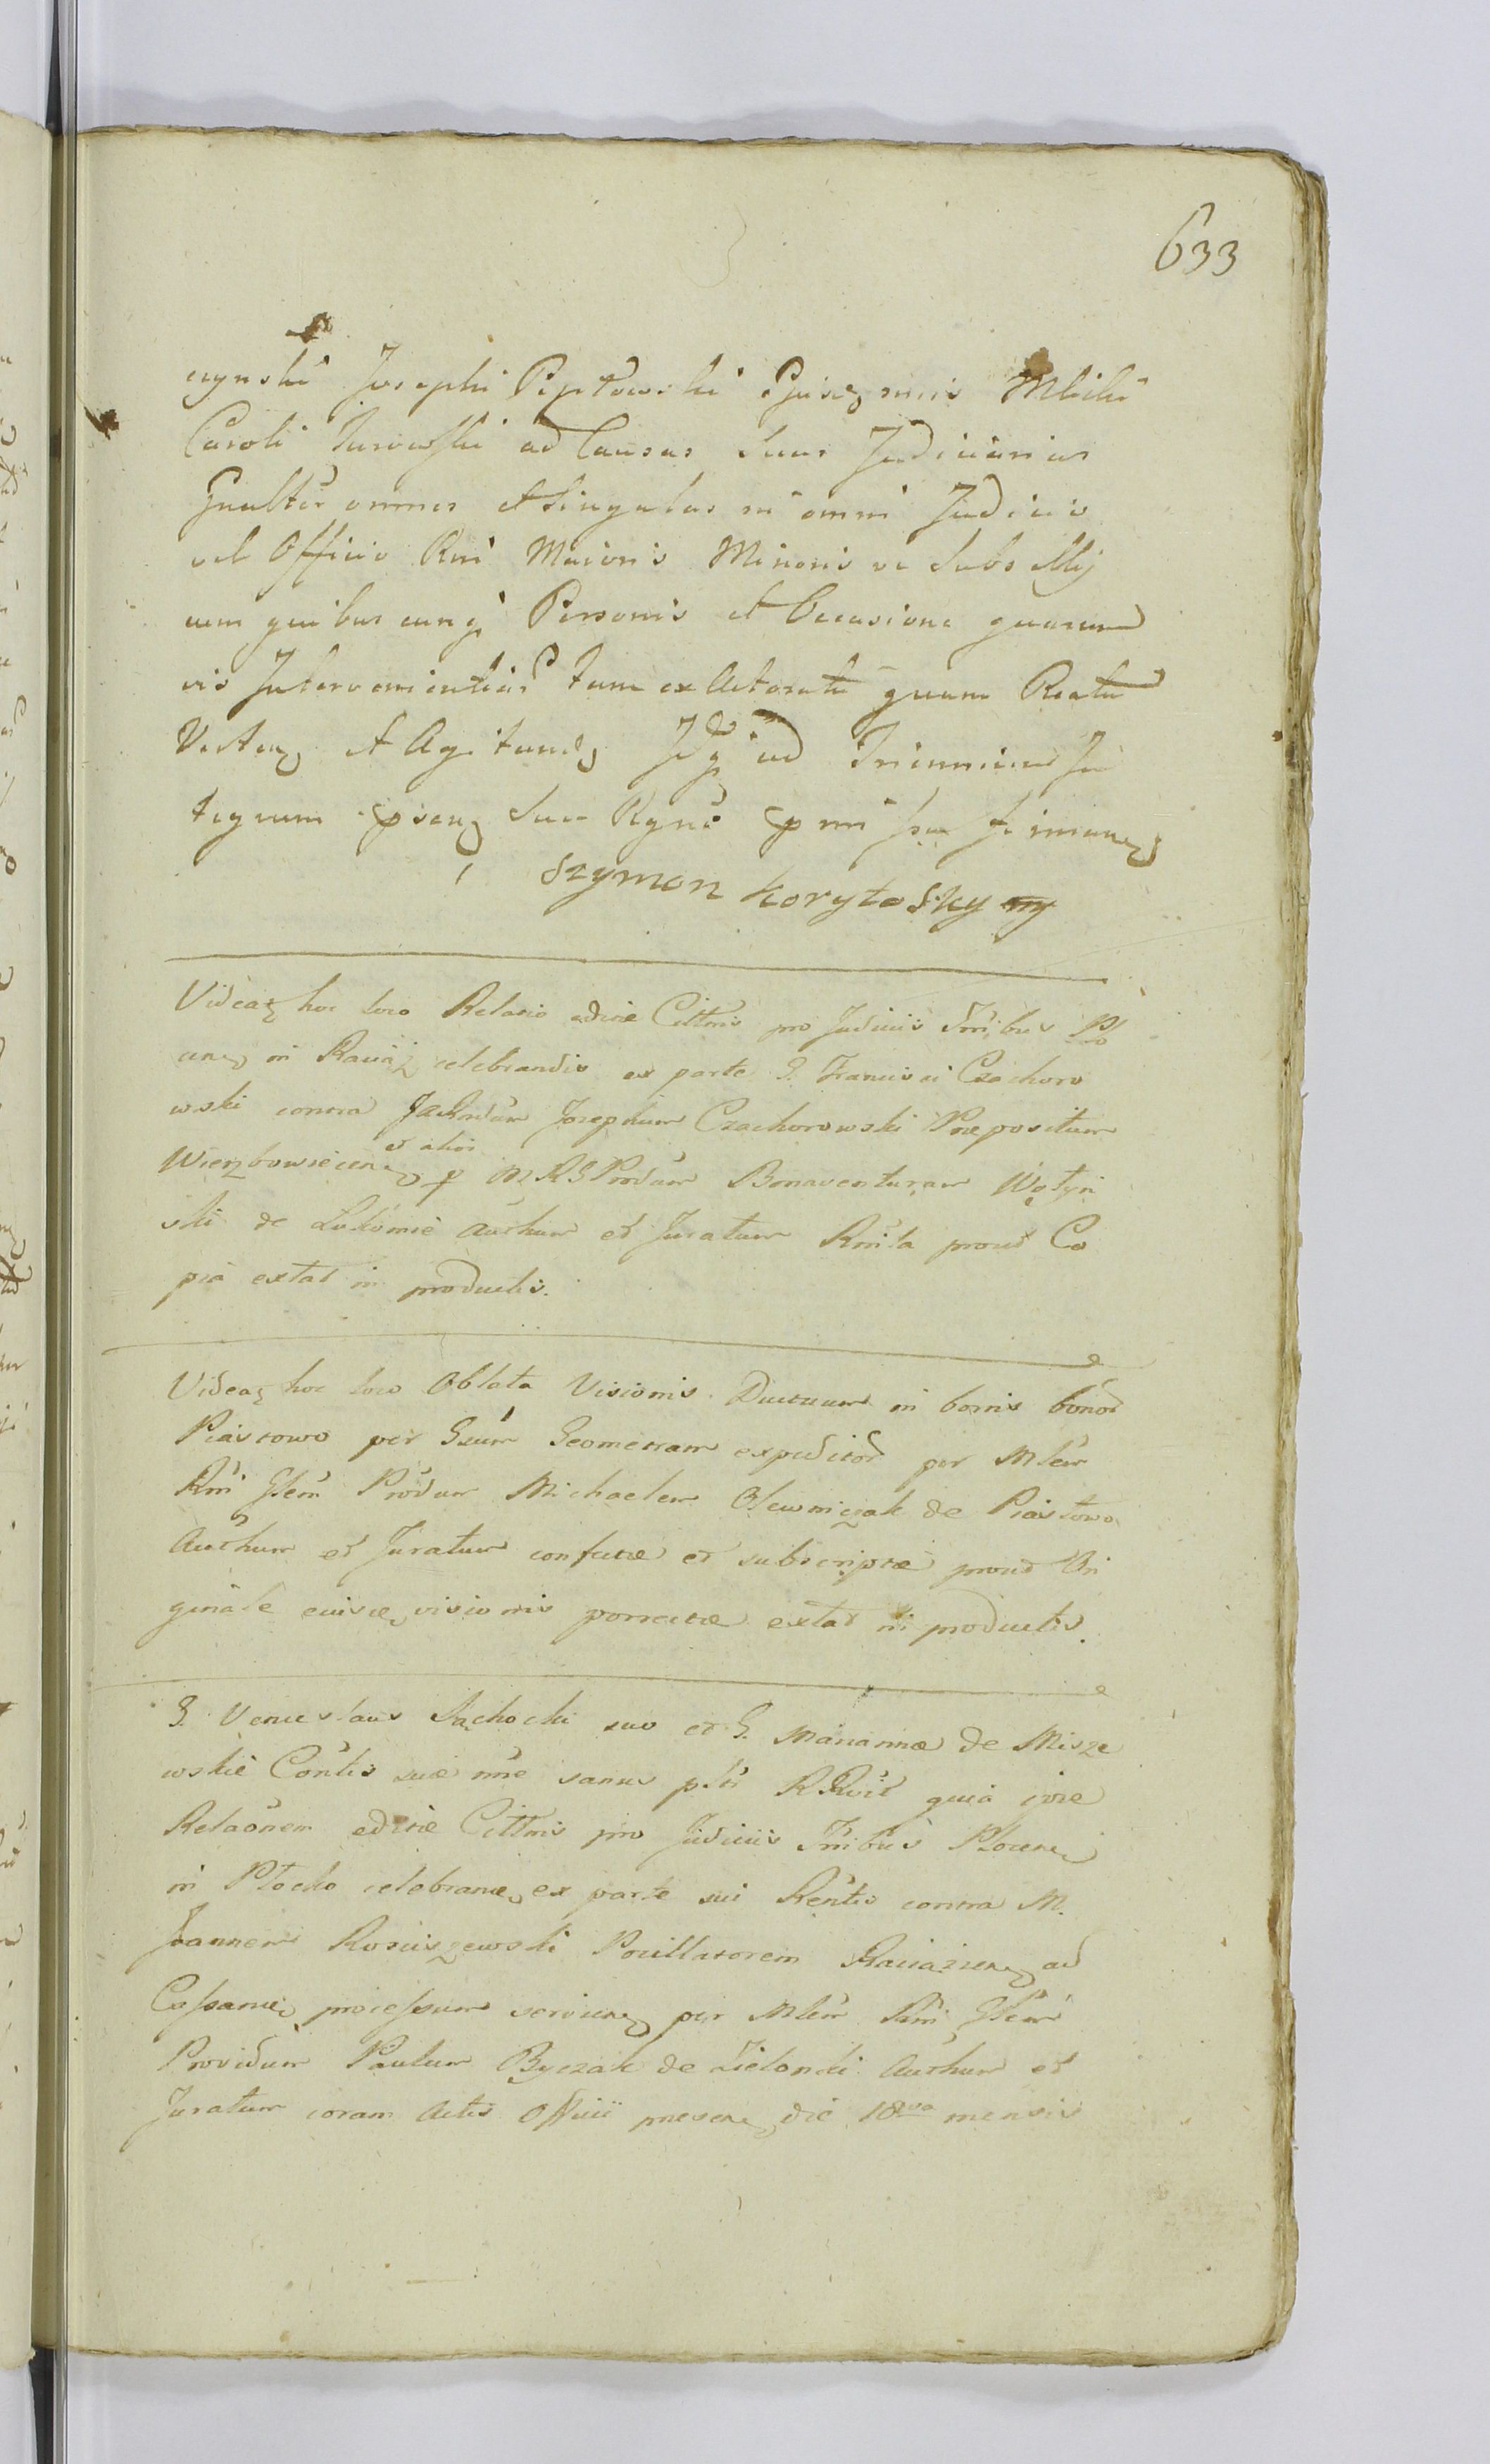 633
czynski Josephi Peptowski ejusz nnis Mlichi
Caroli Turowski ad Causas Suas Judiciarias
Gnalter omnes et Singulas in omni Judicio
vel Officio Rni Maioris Minoris ve Subsellij
cum quibus cunq Personis et Occasione quarum
vis Intervenientium tum ex Actoratu quam Reatu
Vertens et Agitandis ad Triennium In
tegrum psens Sua Rgne mi
Szymon Korytosky mp
Videaz hoc loco Relatio editæ Cittnis pro Judiciis Trribus Plo
cen in Raciąz celebrandis ex parte G. Francisci Czachoro
wski contra Jacdum Josephum Czachorowski Præpositum
Wierzbowiecen et alios p M RG Produm Bonaventuram Wołyń
ski de Lukomie Authum et Juratum Rnita prout Co
pia extat in productis.
Videaz hoc loco Oblata Visionis Ductuum in bonis bonor
Piastowo per Gsum Geometram expeditor per Mlem
Rni Glem Produm Michaelem Olewniczak de Piastowo
Authum et Juratum confectæ et subscriptæ prout Ori
ginale eiusce visionis porrectæ extat in productis.
G. Venceslaus Sąchocki suo et G. Mariannæ de Misze
wskie Contis suæ nne sanus pltr RRvit quia ipse
Relaonem editæ Cittnis pro Judiciis Trribus Plocen
in Płocko celebrane ex parte sui Rentis contra M.
Joannem Rosciszewski Pocillatorem Raciązien ad
Cassanne processum servien per Mlem Rni Glem
Providum Paulum Byczak de Zielonki Authum et
Juratum coram Actis Officii presen die 18va mensis